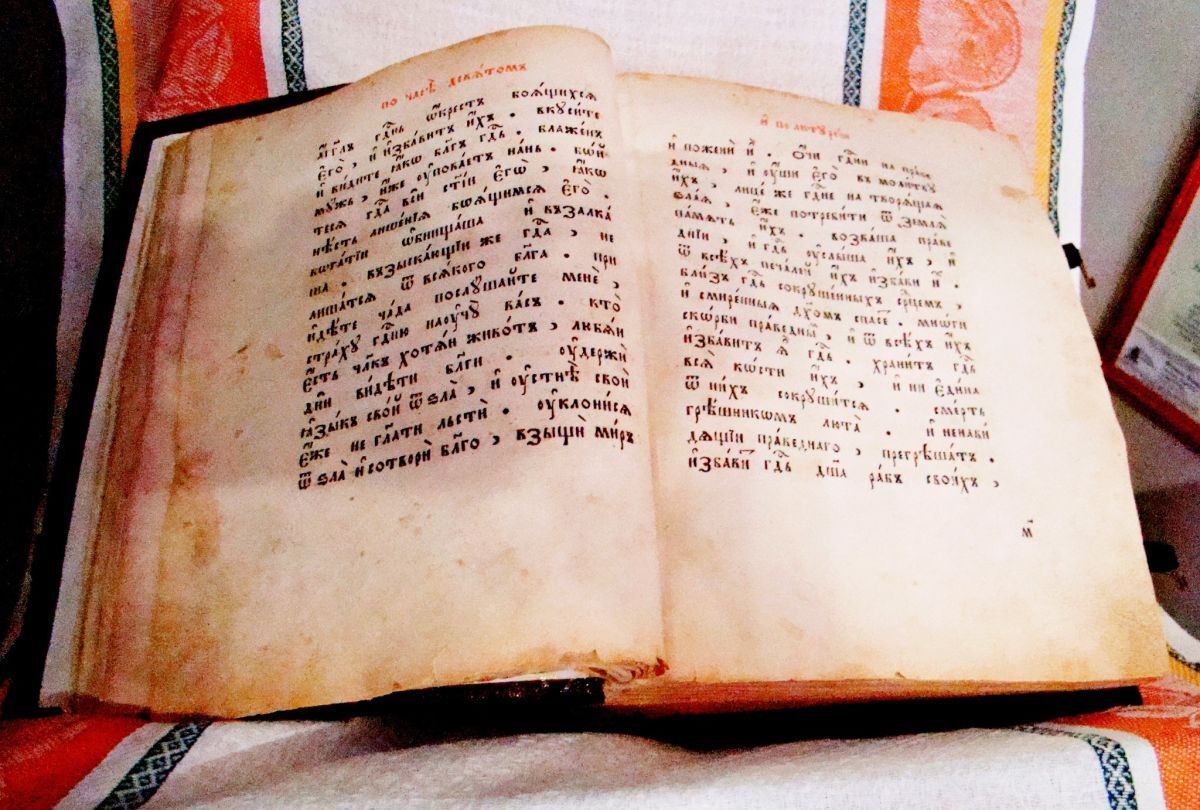 по часѣ̀ девѧ́томъ
а҆́гг҃лъ гдⷭ҇нь ѡ҆́крестъ боѧ́щихсѧ
є҆гѡ̀ , и҆ и҆зба́витъ и҆́хъ . вкуси́те
и҆ ви́дите ꙗ҆́кѡ бл҃гъ гдⷭ҇ь . блаже́нъ
мꙋ́жъ , и҆́же ᲂу҆пова́етъ на́нь . бо́й
тесѧ гдⷭ҇а всѝ ст҃і́и є҆гѡ̀ , ꙗ҆́кѡ
нѣ́сть лише́нїѧ боѧ́щимсѧ є҆гѡ̀ .
бога́тїи ѡ҆бнища́ша и҆ възалка́
ша . възыска́ющїи же гдⷭ҇а , не
лиша́тсѧ ѿ всѧ́кого бл҃га . при
и҆дѣ́те ча́да послꙋ́шайте менѐ ,
стра́хꙋ гдⷭ҇ню наꙋчꙋ̀ ва́съ . кто̀
є҆́сть чл҃къ хотѧ́и живо́тъ , любѧ́и
дни̑ ви́дѣти бл҃ги . ᲂу҆держѝ
ꙗ҆зы́къ сво́й ѿ ѕла̀ , и҆ ᲂу҆стнѣ̀ своѝ
є҆́же не гл҃ати льстѝ . ᲂу҆клони́сѧ
ѿ ѕла̀ и҆ сотворѝ бл҃го , взыщѝ ми́ръ
и҆ по литꙋргі́и
и҆ поженѝ и҆̀ . ѻ҆́чи гдⷭ҇ни на пра́ве
дныѧ , и҆ ᲂу҆́ши є҆гѡ̀ въ моли́твꙋ
и҆́хъ , лице́ же гдⷭ҇не на творѧ́щаѧ
ѕла́ѧ , є҆́же потреби́ти ѿ землѧ̀
па́мѧть и҆́хъ . возва́ша пра́ве
днїи , и҆ гдⷭ҇ь ᲂу҆слы́ша и҆́хъ , и҆
ѿ всѣ́хъ печа́лей и҆́хъ и҆зба́ви и҆̀ .
бли́зъ гдⷭ҇ь сокрꙋше́нныхъ срⷣцемъ ,
и҆ смире́нныѧ дх҃омъ спасе́тъ . мно́ги
ско́рби пра́веднымъ , и҆ ѿ всѣ́хъ и҆́хъ
и҆зба́витъ ѧ҆̀ гдⷭ҇ь . храни́тъ гдⷭ҇ь
всѧ̀ ко́сти и҆́хъ , и҆ ни є҆ди́на
ѿ ни́хъ сокрꙋши́тсѧ . сме́рть
грѣ́шникомъ люта̀ . и҆ ненави́
дѧщїи пра́веднаго , прегрѣша́тъ .
и҆зба́витъ гдⷭ҇ь дш҃а ра́бъ свои́хъ ,
м҃